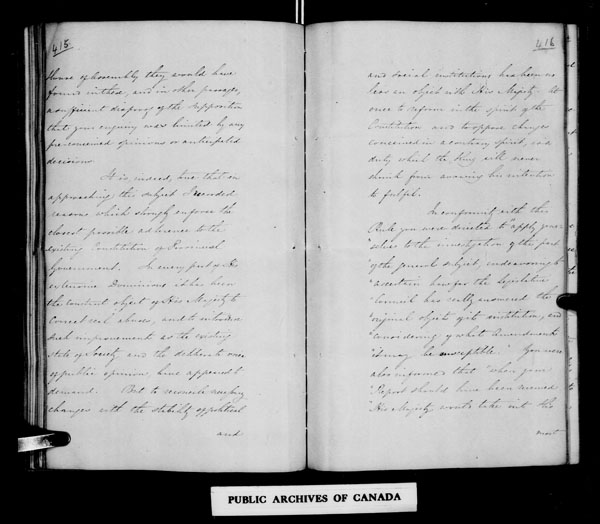 415
House of Assembly they would have
found in these, and in other passages,
a sufficient disproof of the supposition
that your enquiry was limited by any
pre-conceived opinions or anticipated
decisions.
It is, indeed, true that in
approaching this subject I recorded
reasons which strongly enforce the
closest possible adherence to the
existing Constitution of Provincial
Government. In every part of His
extensive Dominions it has been
the constant object of His Majesty to
correct real abuses, and to introduce
such improvements as the existing
State of Society and the deliberate
of public opinion, have appeared to
demand. But to reconcile necessary
changes with the stability of political
and
416
and social institutions has been no
less an object with His Majesty. At
once to reform in the spirit of the
Constitution and to oppose changes
conceived in a contrary spirit, is a
duty which the King will never
shrink from avowing his intention
to fulfil.
In conformity with this
Rule you were directed to "apply your
"selves to the investigation of this part
"of the general subject, endeavouring to
"ascertain how far the Legislative
"Council has really answered the
"original objects of its institution, and
"considering of what amendments
"it may be susceptible." You were
also informed that "when your
"Report should have been received
"His Majesty would take into His
most
PUBLIC ARCHIVES OF CANADA